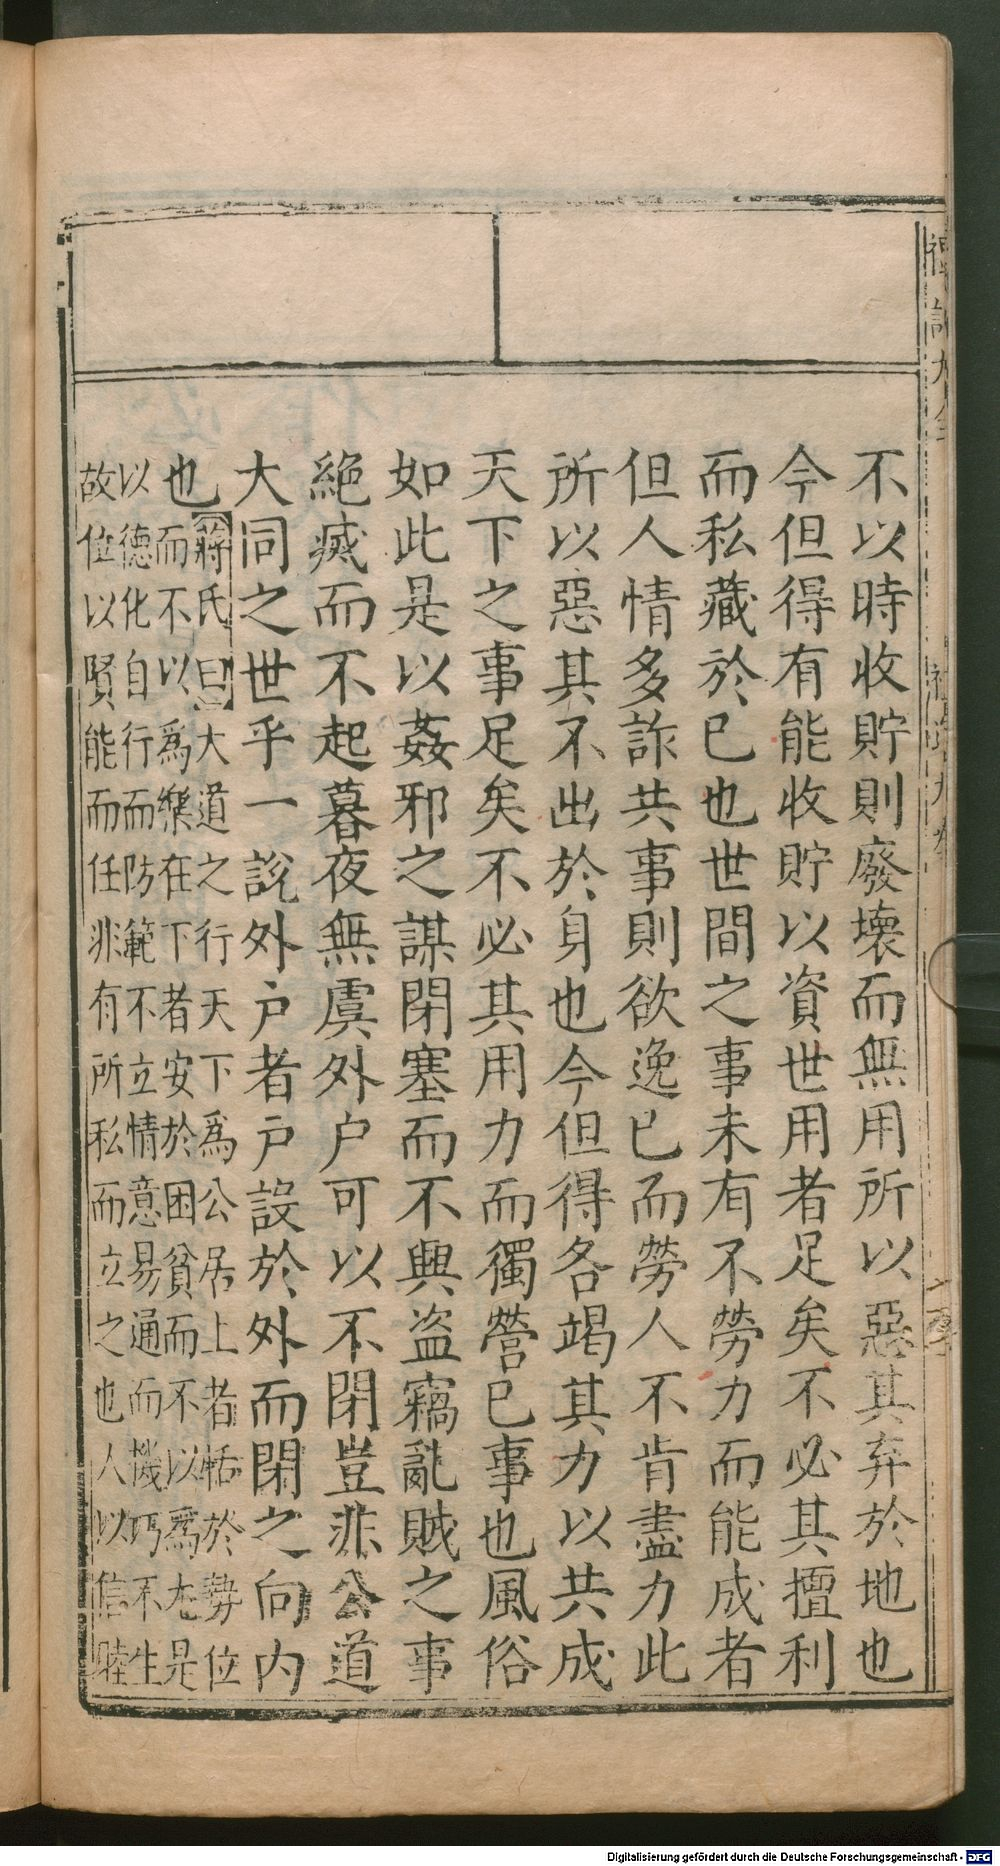 不以時收貯則廢壞而無用所以惡其弃於地也
今但得有能收貯以資世用者足矣不必其擅利
而私藏於已也世間之事未有不勞力而能成者
但人情多詐共事則欲逸已而勞人不肯盡力此
所以惡其不出於身也今但得各竭其力以共成
天下之事足矣不必其用力而獨營已事也風俗
如此是以姦邪之謀閉塞而不興盜竊亂賊之事
絕滅而不起暮夜無虞外户可以不閉豈非公道
大同之世乎一說外户者户設於外而閉之向内
也
蔣氏曰大道之行天下爲公居上者恬於勢位
而不以爲樂在下者安於困貧而不以爲尢是
以德化自行而防範不立情意易通而機巧不生
故位以賢能而任非有所私而立之也人以信睦
Digitalisierung gefördert durch die Deutsche Forschungsgemeinschaft - DFG